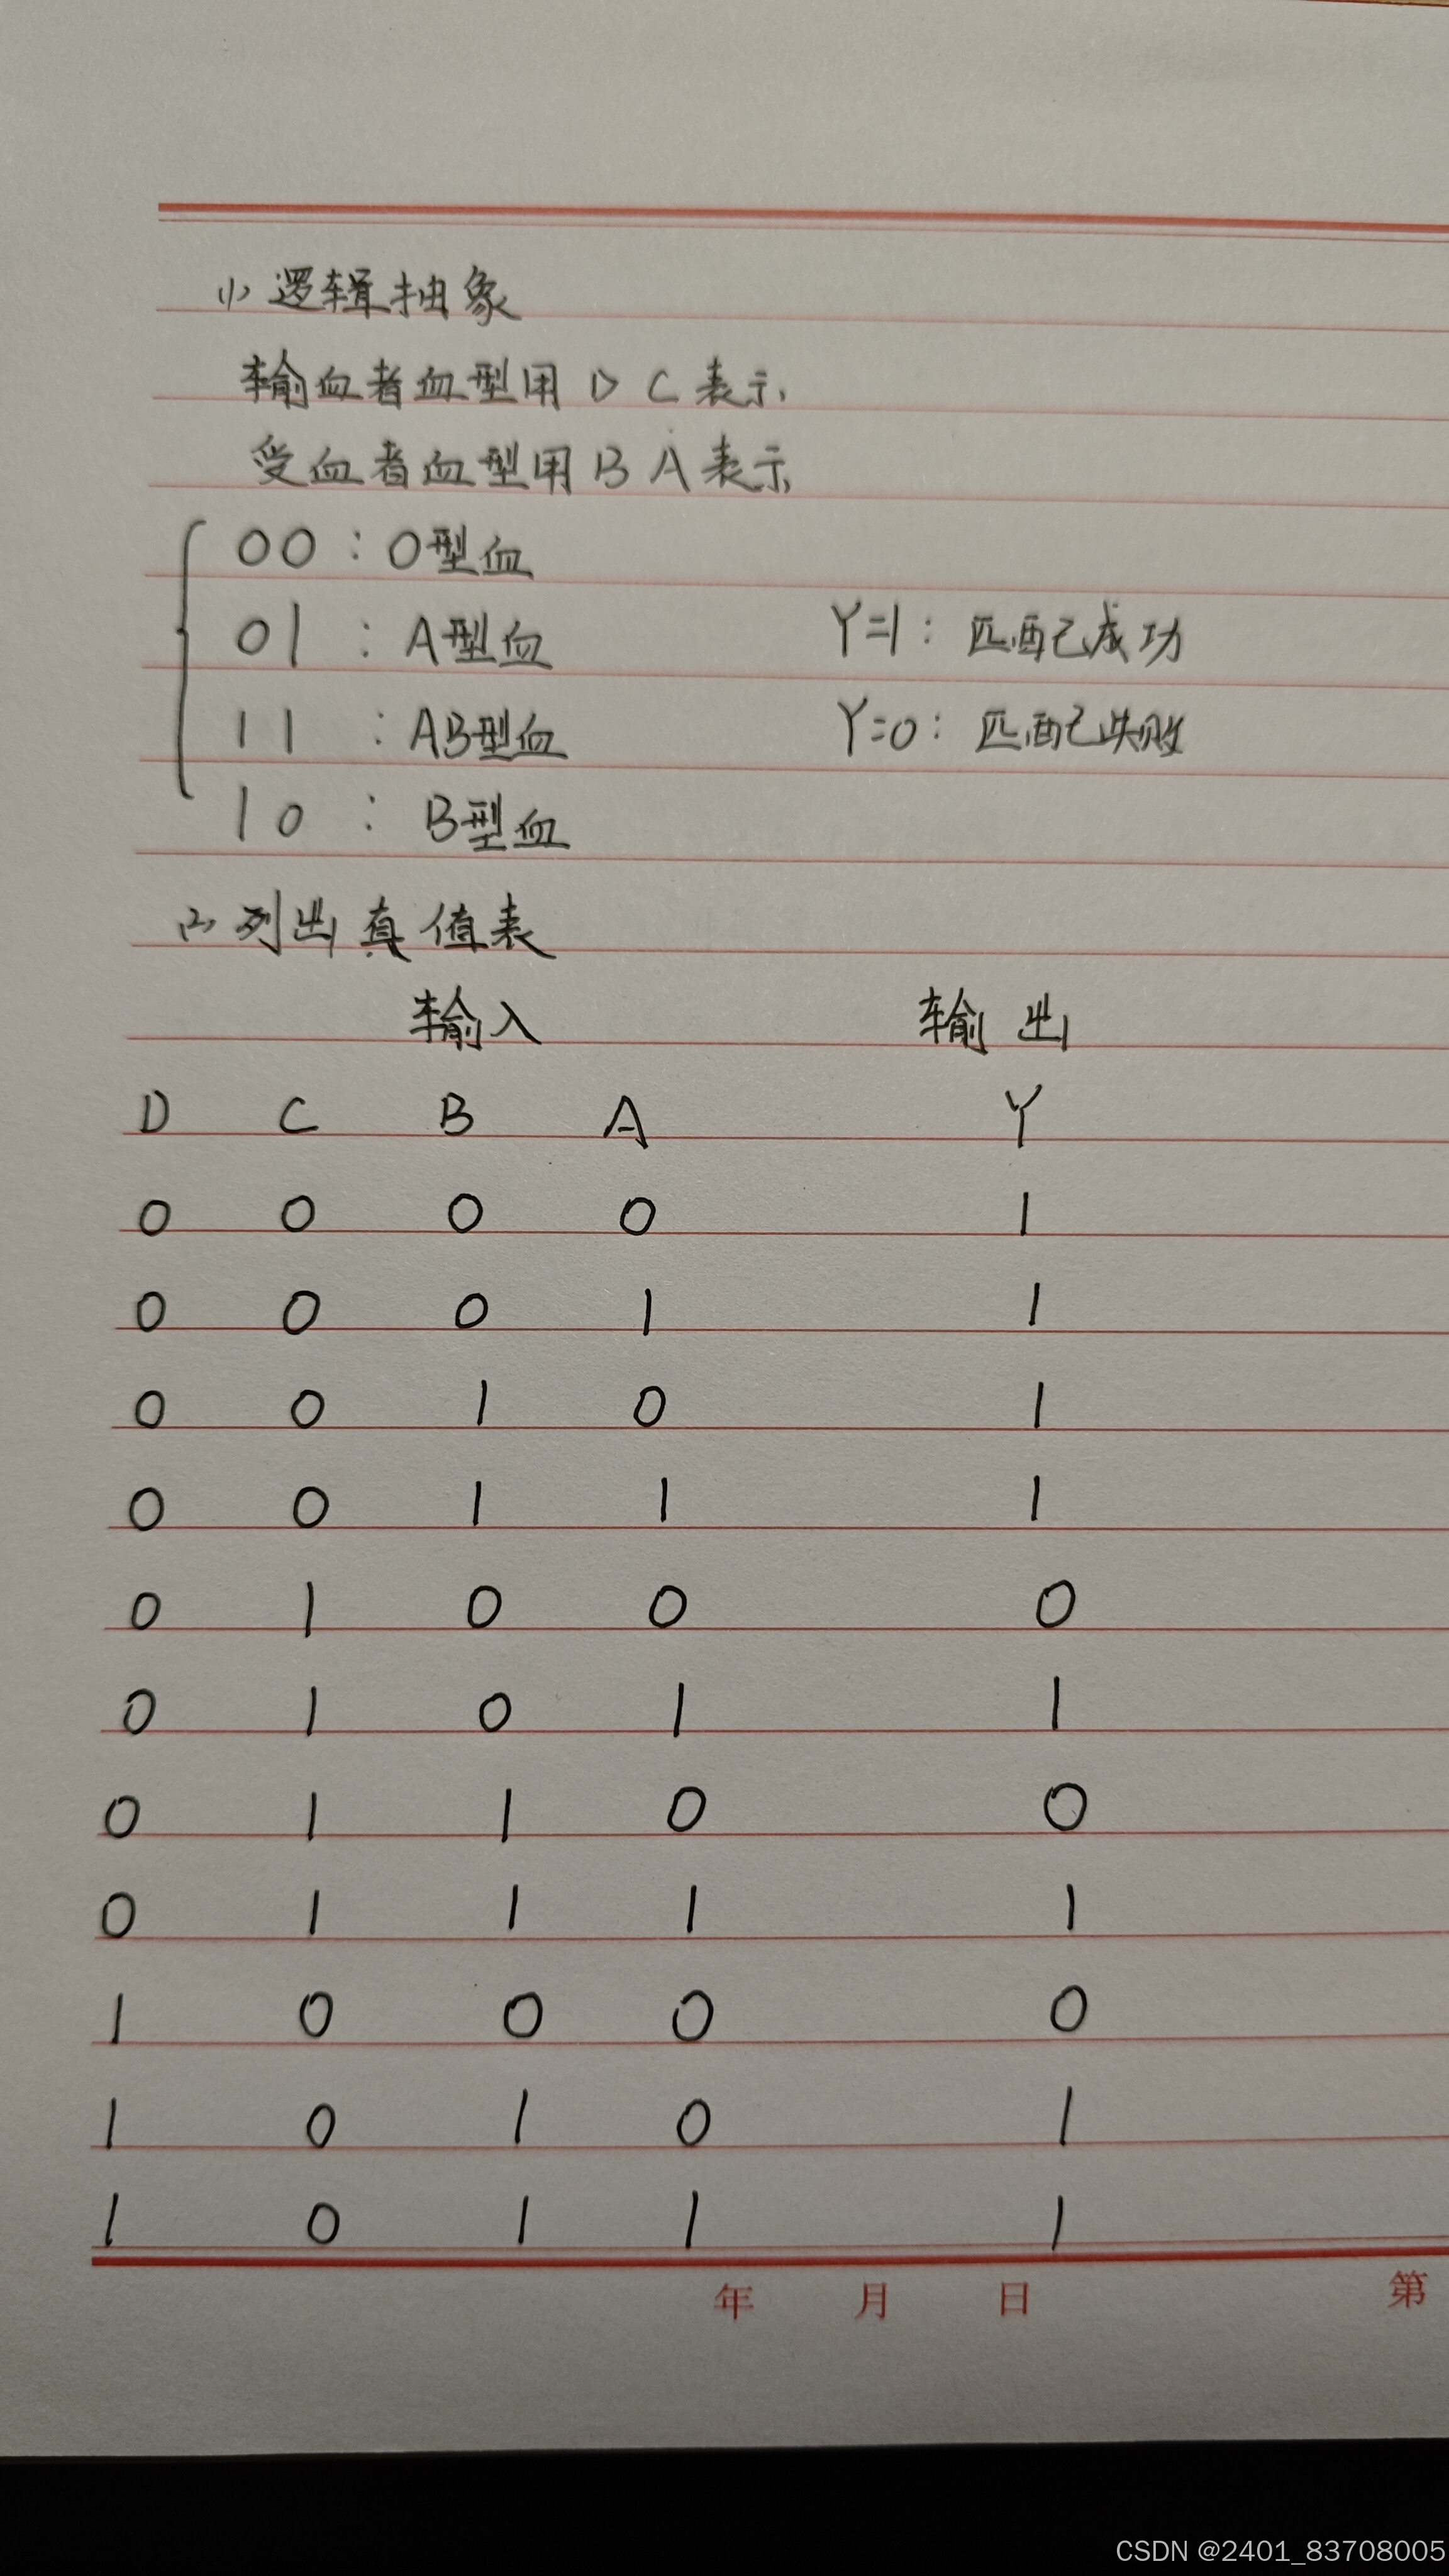 (1) 逻辑抽象
输血者血型用 D C 表示
受血者血型用 B A 表示
00 : O型血
01 : A型血 Y=1: 匹配成功
11 : AB型血 Y=0: 匹配失败
10 : B型血
(2) 列出真值表
输入 输出
D C B A Y
0 0 0 0 1
0 0 0 1 1
0 0 1 0 1
0 0 1 1 1
0 1 0 0 0
0 1 0 1 1
0 1 1 0 0
0 1 1 1 1
1 0 0 0 0
1 0 1 0 1
1 0 1 1 1
年 月 日 第
CSDN @2401_83708005